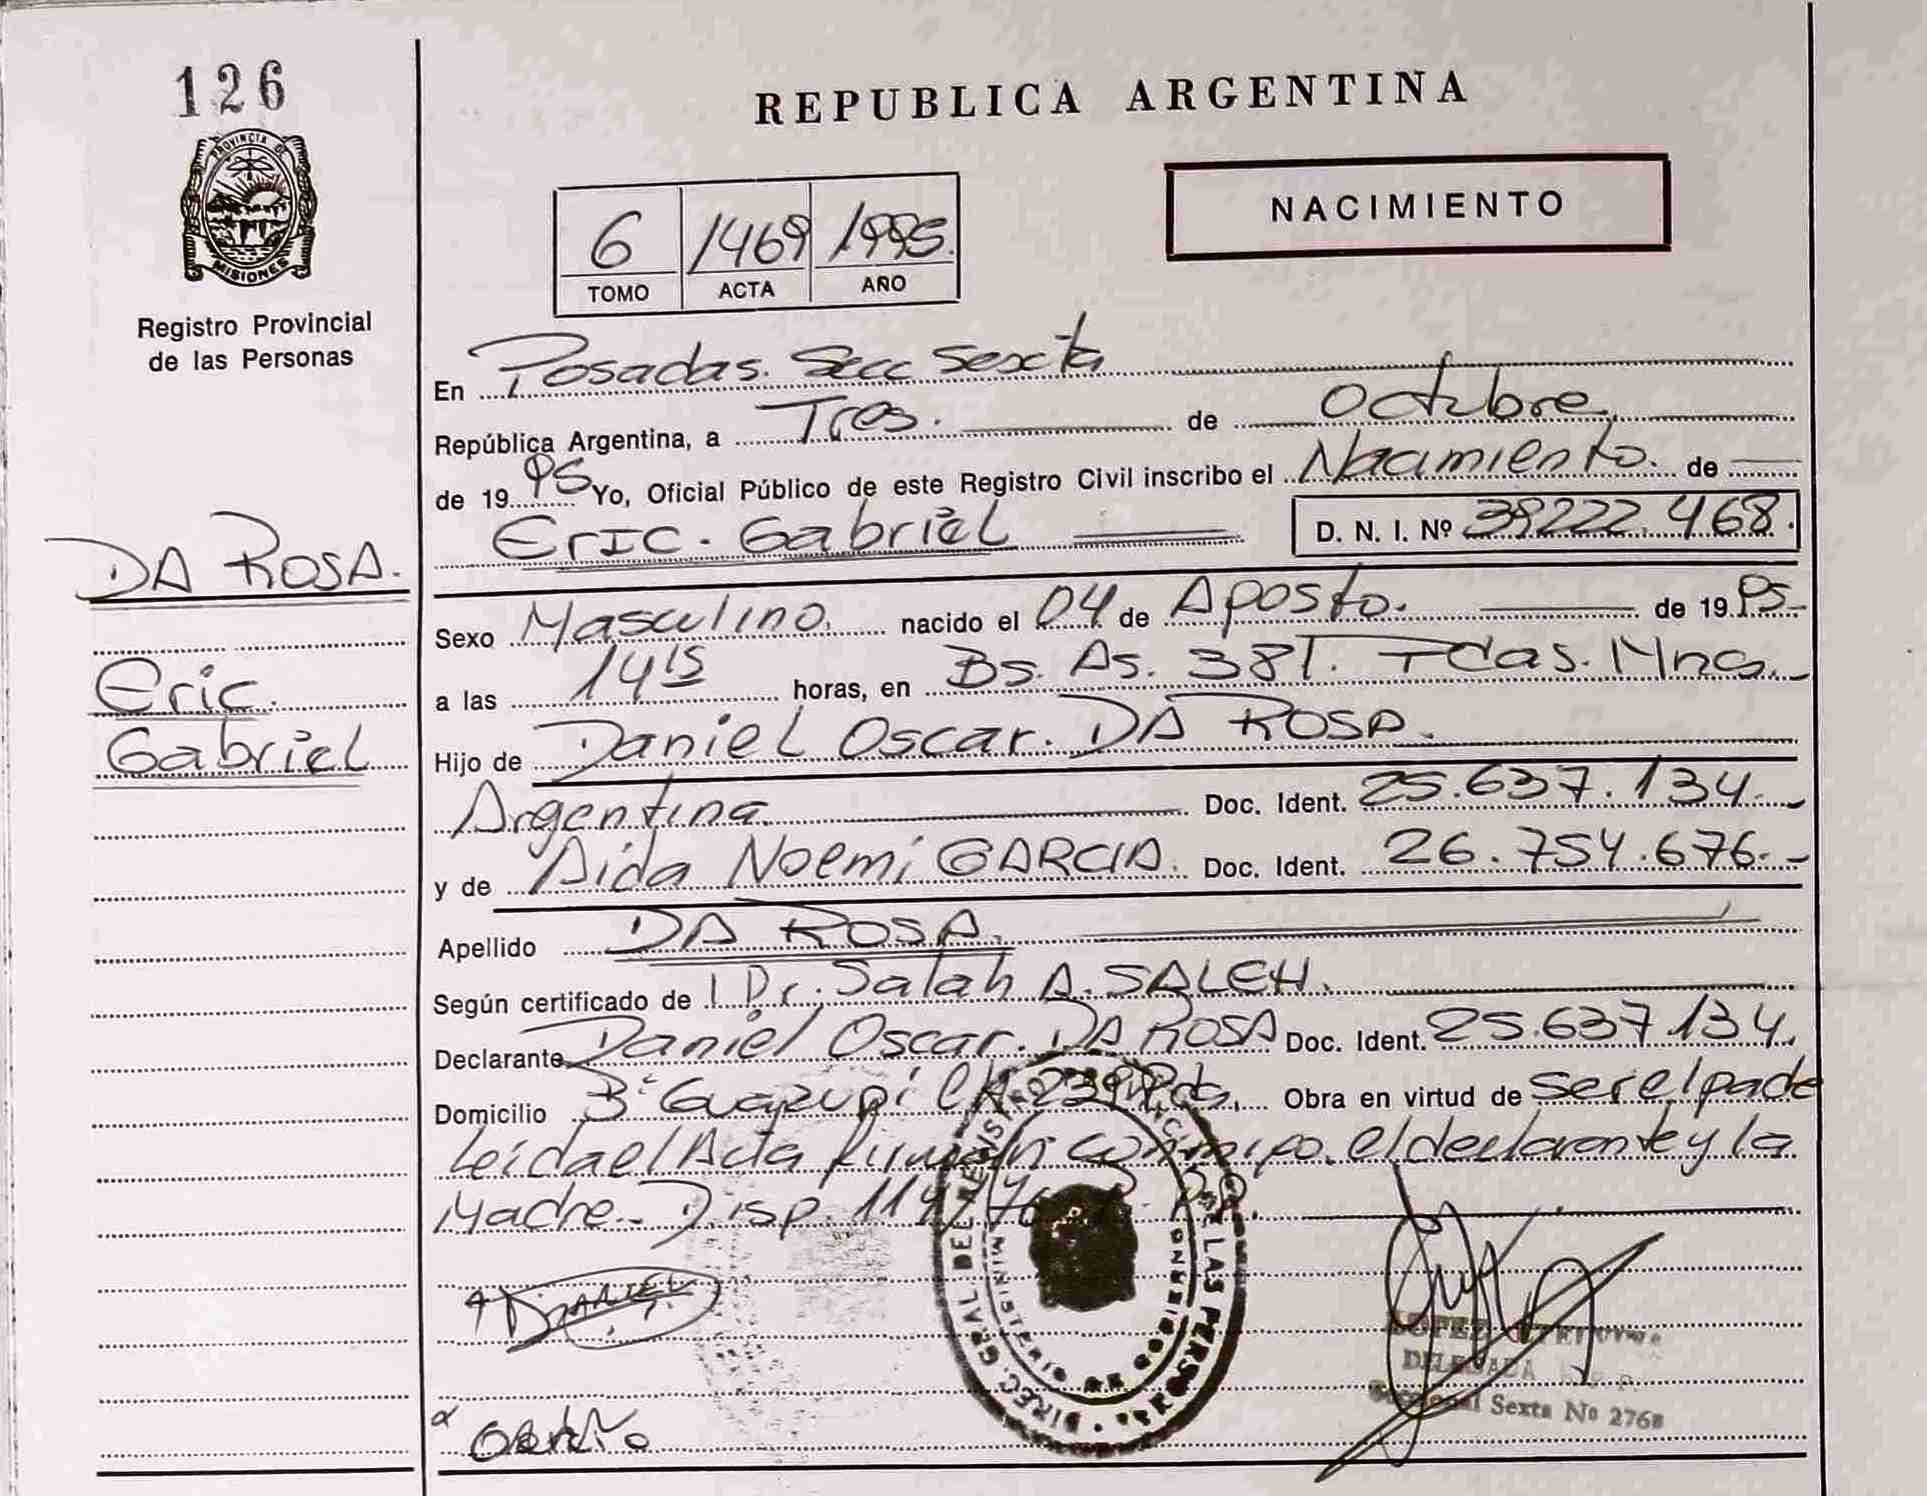 126
PROVINCIA DE
MISIONES
Registro Provincial
de las Personas
DA ROSA.
Eric.
Gabriel
REPUBLICA ARGENTINA
NACIMIENTO
6 1469 1995.
TOMO ACTA AÑO
En Posadas. Secc Sexta
República Argentina, a Tres. de Octubre
de 19 95 Yo, Oficial Público de este Registro Civil inscribo el Nacimiento. de
Eric. Gabriel D. N. I. Nº 39222.468.
Sexo Masculino. nacido el 04 de Agosto. de 19 95
a las 14 15 horas, en Bs. As. 381. Pdas. Mnes.
Hijo de Daniel Oscar. DA ROSA.
Argentina Doc. Ident. 25.637.134.
y de Aida Noemi GARCIA. Doc. Ident. 26.754.676.
Apellido DA ROSA.
Según certificado de Dr. Salah A. SALEH.
Declarante Daniel Oscar. DA ROSA Doc. Ident. 25.637 134.
Domicilio Bº Guazupi Obra en virtud de ser el padre
Leida el Acta conmigo. el declarante y la
Madre. Disp.
DIREC. GRAL DEL REGISTRO PROVINCIAL DE LAS PERSONAS
MINISTERIO DE GOBIERNO
DANIEL
LOPEZ
DELEGADA
Seccional Sexta Nº 2768